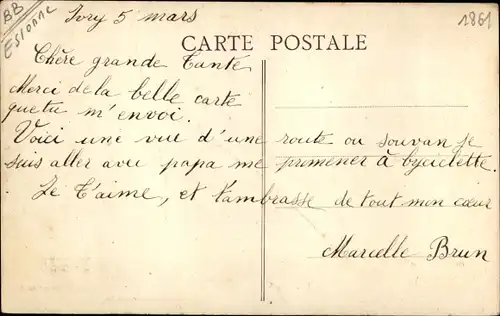 BB
Essonne
Ivry 5 mars
1861
CARTE POSTALE
Chère grande Tante
Merci de la belle carte
que tu m'envoi.
Voici une vue d'une route ou souvan je
suis aller avec papa me primener à byciclette.
Je t'aime, et t'ambrasse de tout mon cœur
Marcelle Brun